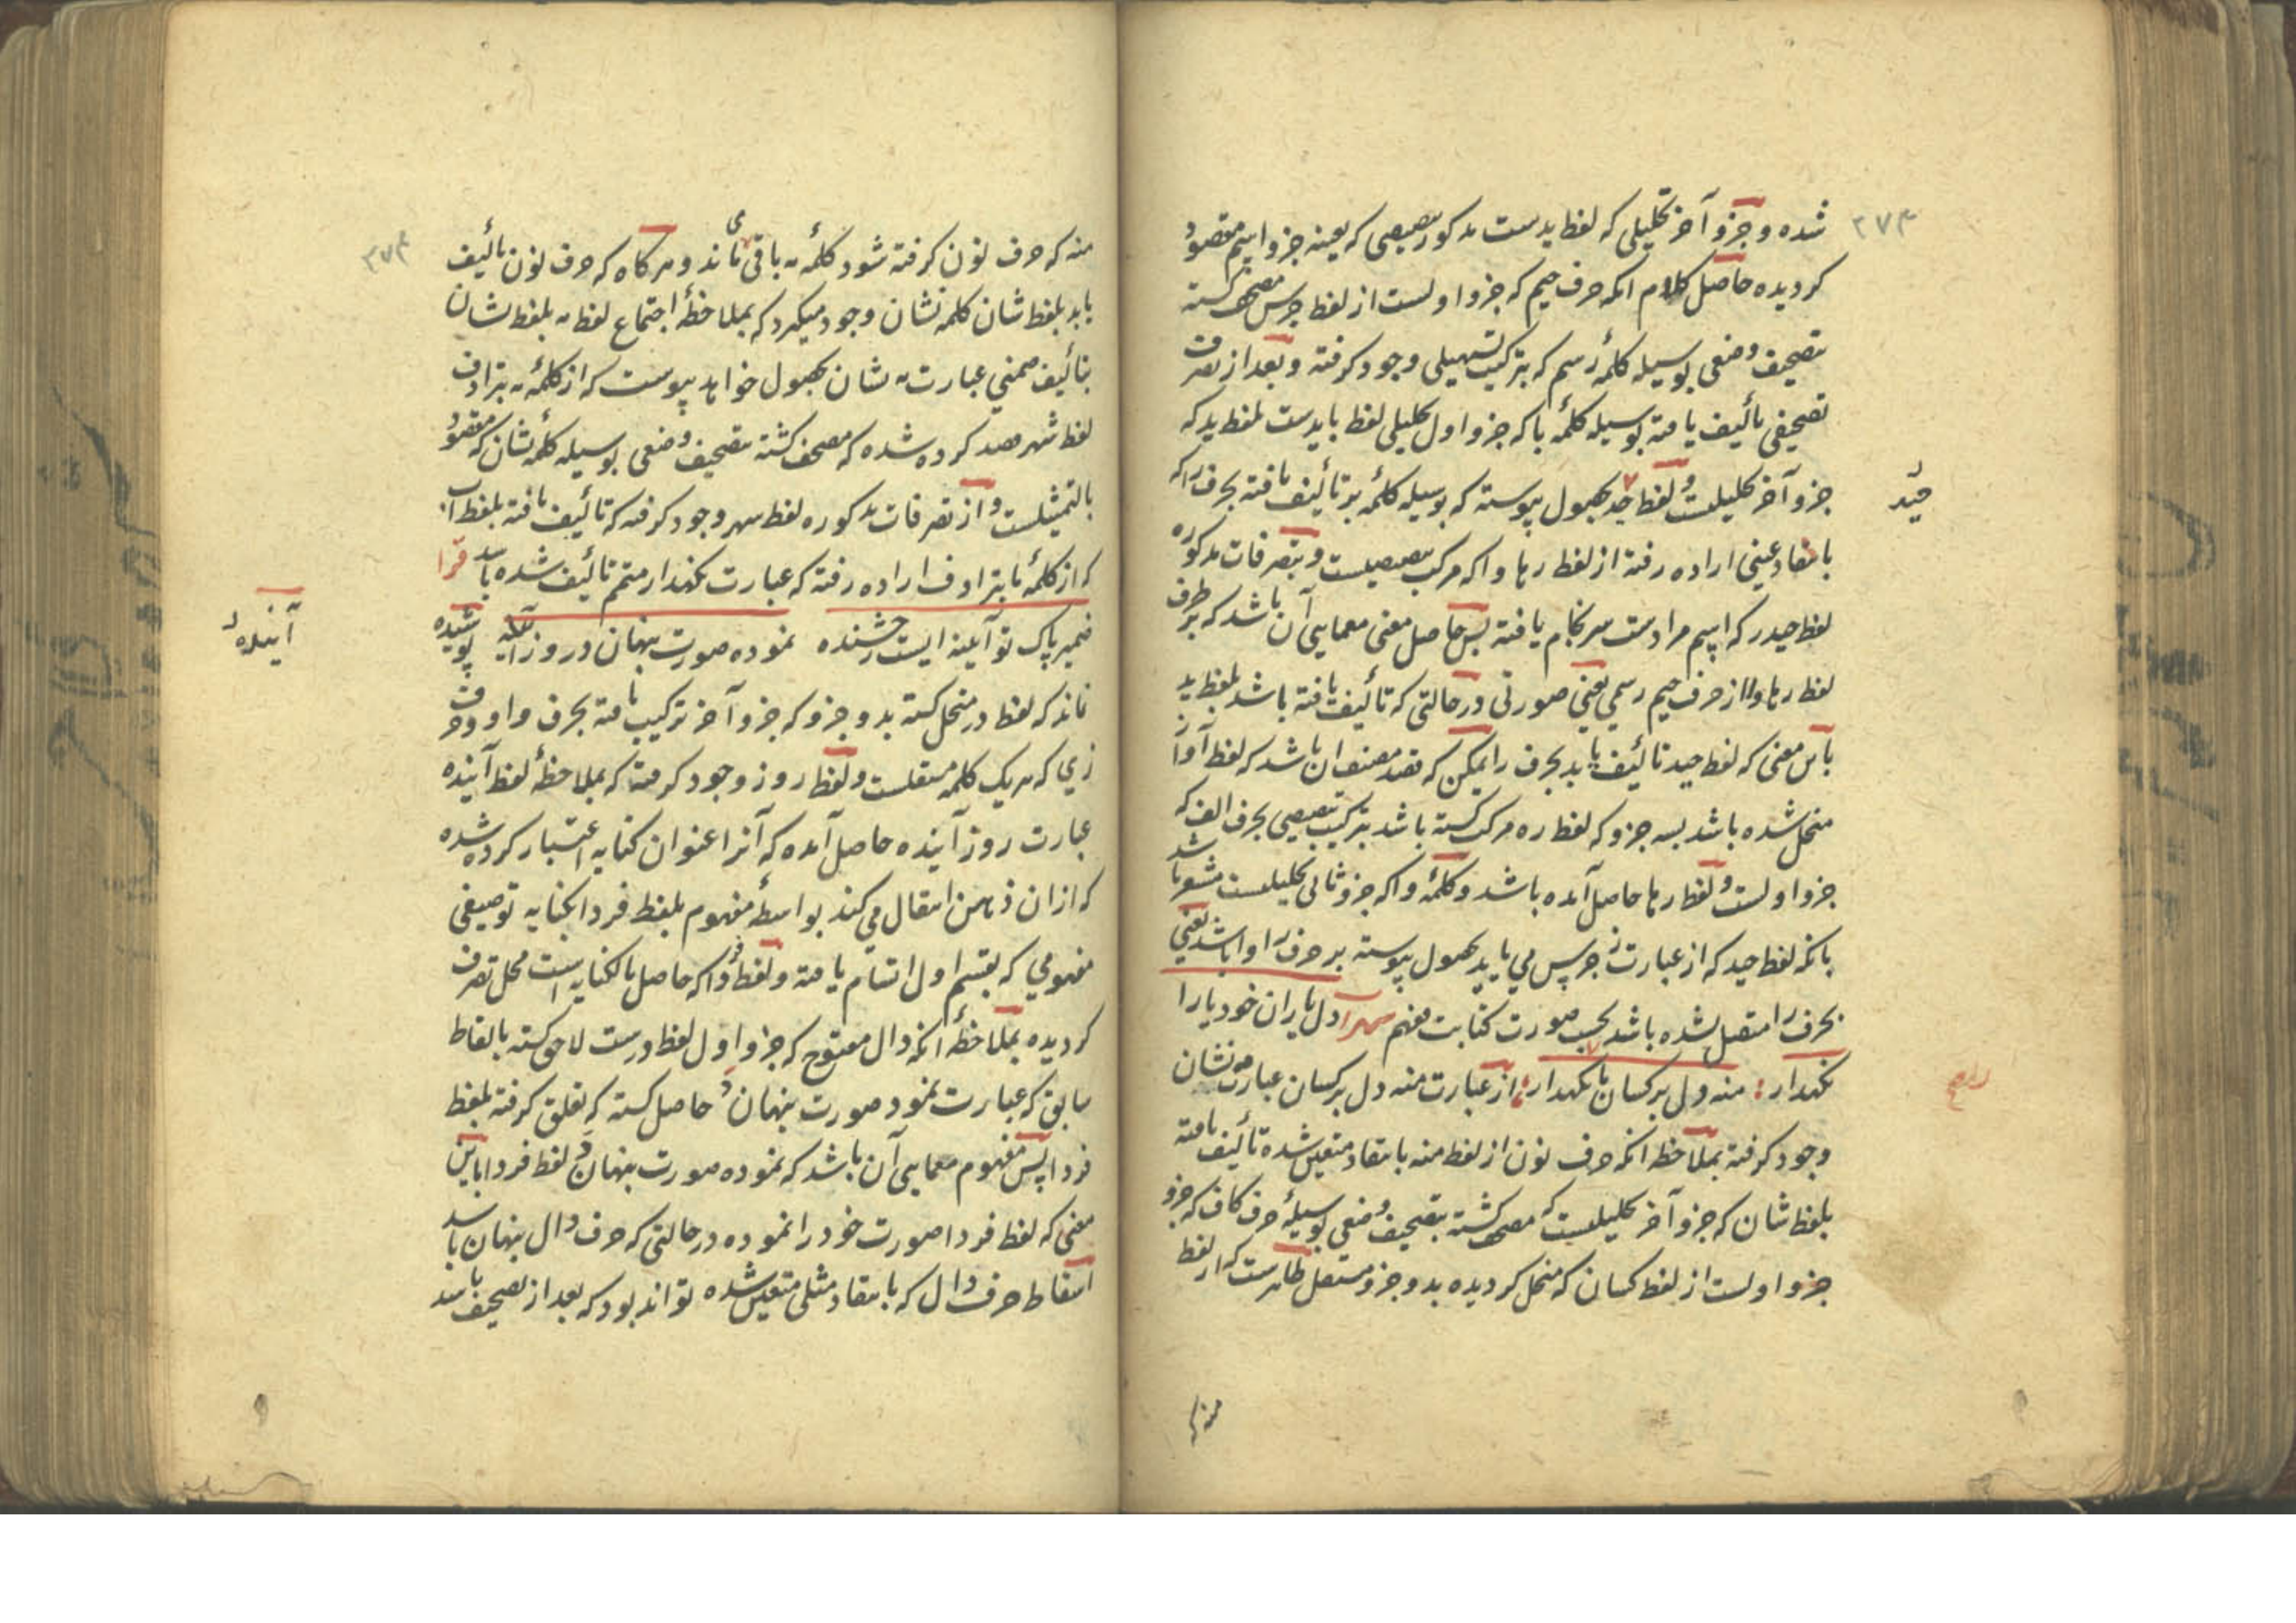 ۲۷۳
شده و جزو آخر تحلیلی که لفظ یدست مذکور تبعیضی که بعینه جزو اسم مقصود
کردیده حاصل کلام انکه حرف جیم که جزو اولست از لفظ جرس مصحف کشته
بتصحیف وضعی بوسیله کلمهٔ رسم که بترکیب تسهیلی وجود کرفته و بعد از تصرف
تصحیفی تألیف یافته بوسیله کلمهٔ با که جزو اول تحلیلی لفظ بایدست بلفظ ید که
جزو آخر تحلیلیست و لفظ حید بحصول پیوسته که بوسیله کلمهٔ بر تألیف یافته بحرف را که
حید
بانتقاد عینی اراده رفته از لفظ رها و اکه مرکب تبعیضیست و بتصرفات مذکوره
لفظ حیدر که اسم مرادست سرنجام یافته پس حاصل معنی معمایی آن باشد که بر طرف
لفظ رها واا از حرف جیم رسمی یعنی صورتی در حالتی که تألیف یافته باشد بلفظ ید
باین معنی که لفظ حید تألیف یابد بحرف را یمکن که قصد مصنف ان باشد که لفظ آواز
منحل شده باشد بسه جزو که لفظ ره مرکب کشته باشد بترکیب تبعیضی بحرف الف که
جزو اولست و لفظ رها حاصل آمده باشد و کلمهٔ وا که جزو ثانی تحلیلیست مشعر باشد
بانکه لفظ حید که از عبارت ز جرس می یابد بحصول پیوسته بر حرف را وا باشد یعنی
بحرف را متصل شده باشد بحسب صورت کتابت فهم سهراب دل یاران خود یارا
نکهدار : منه دل بر کسان یا نکهدار : از عبارت منه دل بر کسان عبارت نشان
وجود کرفته بملاحظه انکه حرف نون از لفظ منه بانتقاد متعین شده تألیف یافته
بلفظ شان که جزو آخر تحلیلیست که مصحف کشته بتصحیف وضعی بوسیلهٔ حرف کاف که جزو
جزو اولست از لفظ کسان که منحل کردیده بدو جزو مستقل ظاهرست که از لفظ
منه
۲۷۴
منه که حرف نون کرفته شود کلمهٔ مه باقی می ماند و هرکاه که حرف نون تألیف
یابد بلفظ شان کلمه نشان وجود میکیرد که بملاحظهٔ اجتماع لفظ مه بلفظ نشان
بتألیف ضمنی عبارت مه نشان بحصول خواهد پیوست که از کلمهٔ مه بترادف
لفظ شهر قصد کرده شده که مصحف کشته بتصحیف وضعی بوسیله کلمهٔ نشان که مقصود
بالتمثیلست و از تصرفات مذکوره لفظ سهر وجود کرفته که تألیف یافته بلفظ اب
که از کلمهٔ ما بترادف اراده رفته که عبارت نکهدار متمم تألیف شده باشد فردا
ضمیر پاک تو آیینه ایست رخشنده نموده صورت پنهان در روز آینده پوشیده
آینده
نماند که لفظ در منحل کشته بدو جزو که جزو آخر ترکیب یافته بحرف واو و حرف
زی که هریک کلمه مستقلست و لفظ روز وجود کرفته که بملاحظهٔ لفظ آینده
عبارت روز آینده حاصل آمده که آنرا عنوان کنایه اعتبار کرده شده
که ازان ذهن انتقال می کند بواسطهٔ مفهوم بلفظ فردا بکنایه توصیفی
مفهومی که بقسم اول اتسام یافته و لفظ فردا که حاصل بالکنایه است محل تصرف
کردیده بملاحظهٔ انکه دال مفتوح که جزو اول لفظ درست لاحق کشته بالفاظ
سابق که عبارت نمود صورت پنهان د حاصل کشته که تعلق کرفته بلفظ
فردا پس مفهوم معمایی آن باشد که نموده صورت پنهان د لفظ فردا باین
معنی که لفظ فردا صورت خود را نموده در حالتی که حرف دال پنهان باشد
اسقاط حرف دال که بانتقاد مثلی متعین شده تواند بود که بعد از تصحیف باشد